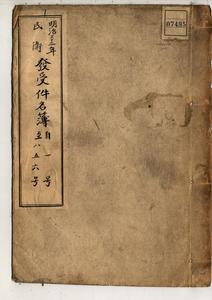 明治三三年
民衛
發受件名簿
自一号
至八五六号
07485